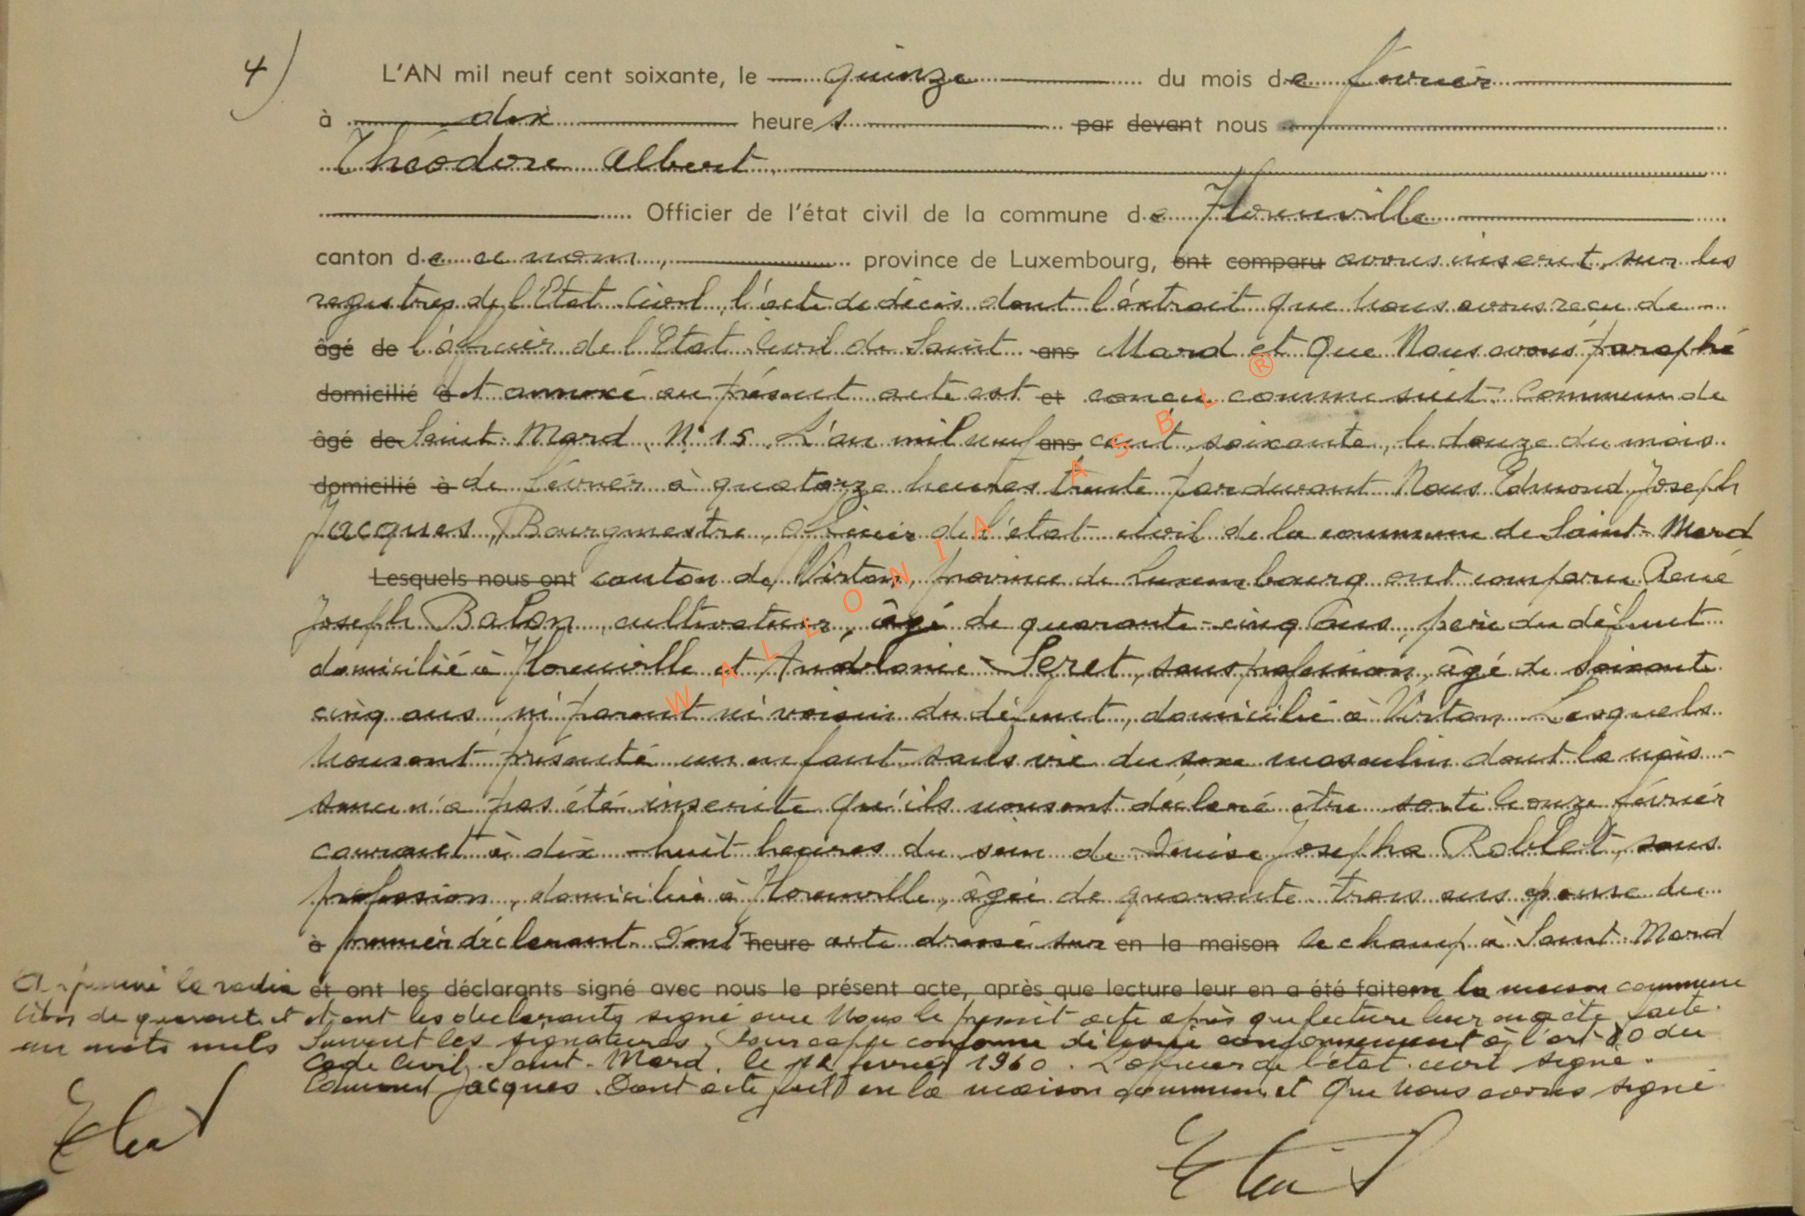 4) L'AN mil neuf cent soixante, le quinze du mois de février
à dix heures par devant nous
Théodore Albert
Officier de l'état civil de la commune de Florenville
canton de ce nom, province de Luxembourg, ont comparu avons inscrit sur les
registres de l'Etat Civil, l'acte de décès dont l'extrait que Nous avons reçu de
âgé de l'officier de l'Etat Civil de Saint ans Mard et que Nous avons paraphé
domicilié à et annexé au présent acte est et conçu comme suit: Commune de
âgé de Saint-Mard, N° 15. L'an mil neuf ans cent soixante, le douze du mois
domicilié à de février à quatorze heures trente par devant Nous Edmond Joseph
Jacques, Bourgmestre, officier de l'état civil de la commune de Saint-Mard
Lesquels nous ont canton de Virton, province de Luxembourg ont comparu René
Joseph Balon, cultivateur, âgé de quarante-cinq ans, père du défunt
domicilié à Florenville et Seret, sans profession, âgé de soixante
cinq ans, ni parent ni voisin du défunt, domicilié à Virton. Lesquels
Nous ont présenté un enfant sans vie du sexe masculin dont la nais-
sance n'a pas été inscrite qu'ils nous ont déclaré être sorti le onze février
courant à dix-huit heures du sein de Louise Josepha Roblet, sans
profession, domiciliée à Florenville, âgée de quarante-trois ans épouse du
à premier déclarant. Dont heure acte dressé sur en la maison le champ à Saint-Mard
Approuvé la radia et ont les déclarants signé avec nous le présent acte, après que lecture leur en a été faite en la maison commune
tion de quarante et et ont les déclarants signé avec Nous le présent acte après que lecture leur en a été faite.
un mots nuls Suivent les signatures. Pour copie conforme délivrée conformément à l'art 80 du
Code Civil. Saint-Mard, le 12 février 1960. L'officier de l'état civil signé.
Edmond Jacques. Dont acte fait en la maison commune et que Nous avons signé
WALLONIA ASBL ®